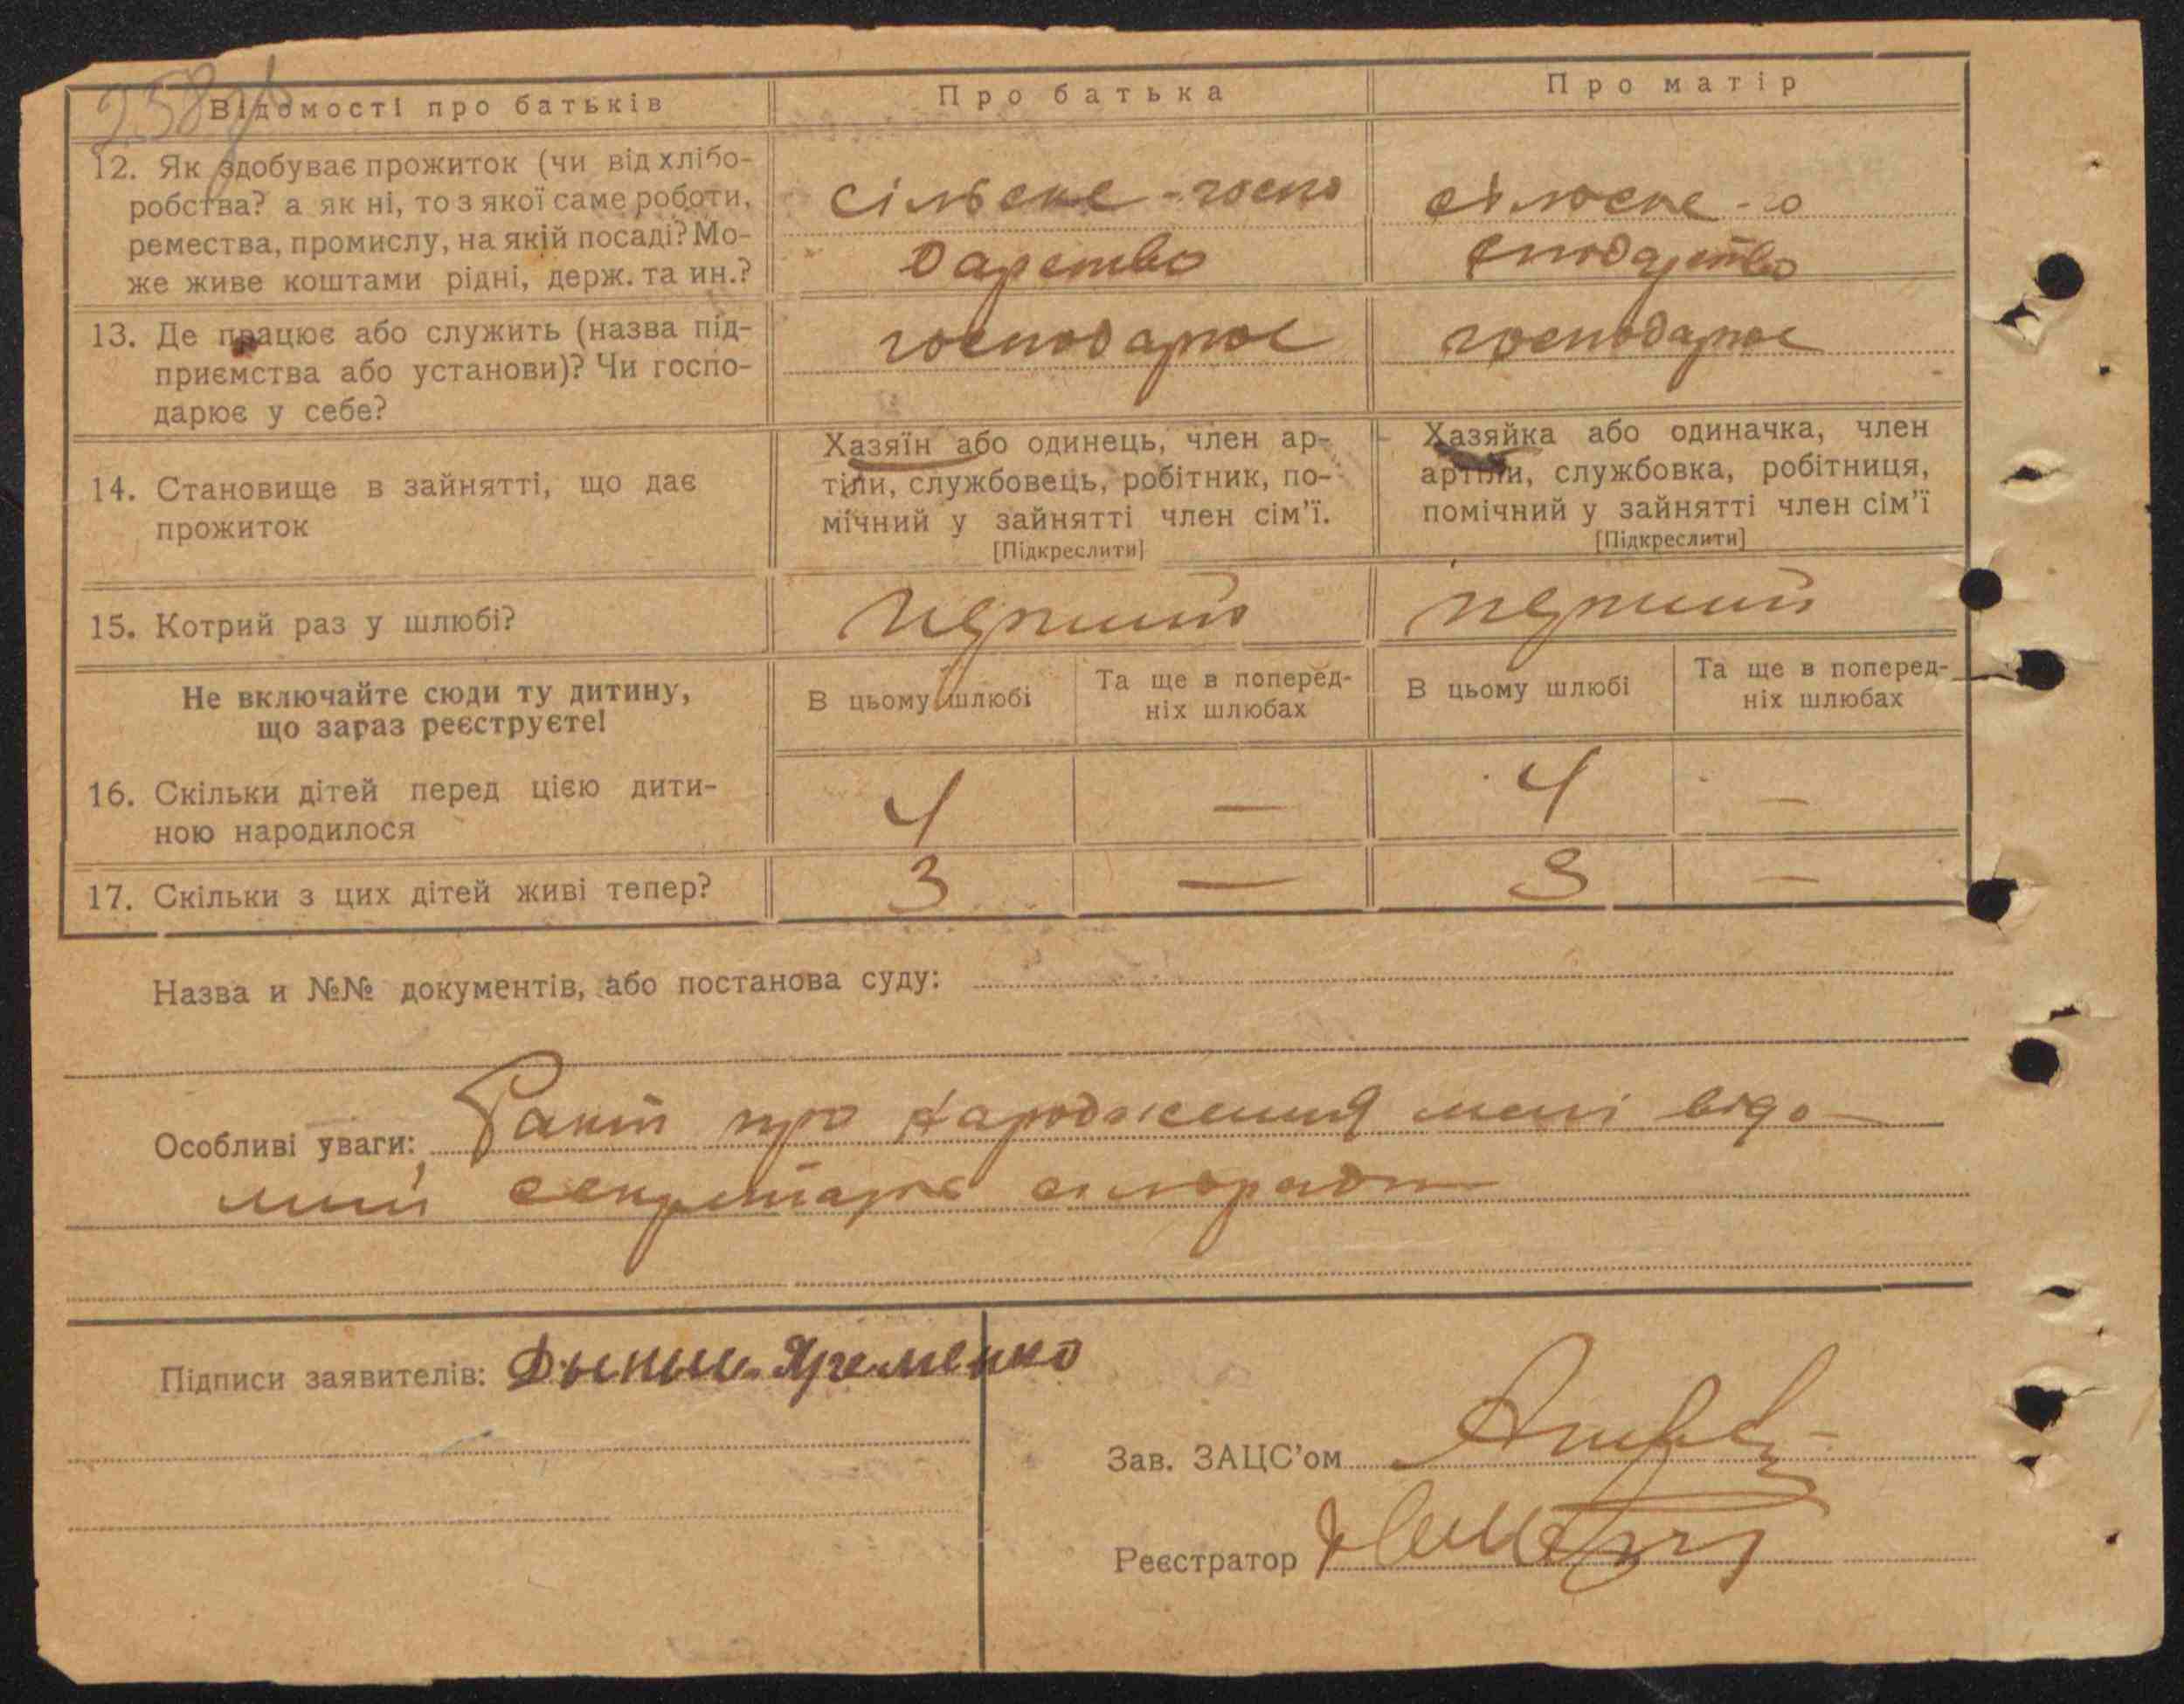 258зв
Відомості про батьків
Про батька
Про матір
12. Як здобуває прожиток (чи від хлібо-
робства? а як ні, то з якої саме роботи,
ремества, промислу, на якій посаді? Мо-
же живе коштами рідні, держ. та ин.?
сільске-госпо
дарство
сільске-го
сподарство
13. Де працює або служить (назва під-
приємства або установи)? Чи госпо-
дарює у себе?
господарює
господарює
14. Становище в зайнятті, що дає
прожиток
Хазяїн або одинець, член ар-
тіли, службовець, робітник, по-
мічний у зайнятті член сім'ї.
[Підкреслити]
Хазяйка або одиначка, член
артіли, службовка, робітниця,
помічний у зайнятті член сім'ї
[Підкреслити]
15. Котрий раз у шлюбі?
перший
перший
Не включайте сюди ту дитину,
що зараз реєструєте!
В цьому шлюбі
Та ще в поперед-
ніх шлюбах
В цьому шлюбі
Та ще в поперед-
ніх шлюбах
16. Скільки дітей перед цією дити-
ною народилося
4
—
4
—
17. Скільки з цих дітей живі тепер?
3
—
3
—
Назва и №№ документів, або постанова суду:
Особливі уваги: Факт про народження мені відо-
мий секретарь сільради
Підписи заявителів: Яременко
Зав. ЗАЦС'ом
Реєстратор